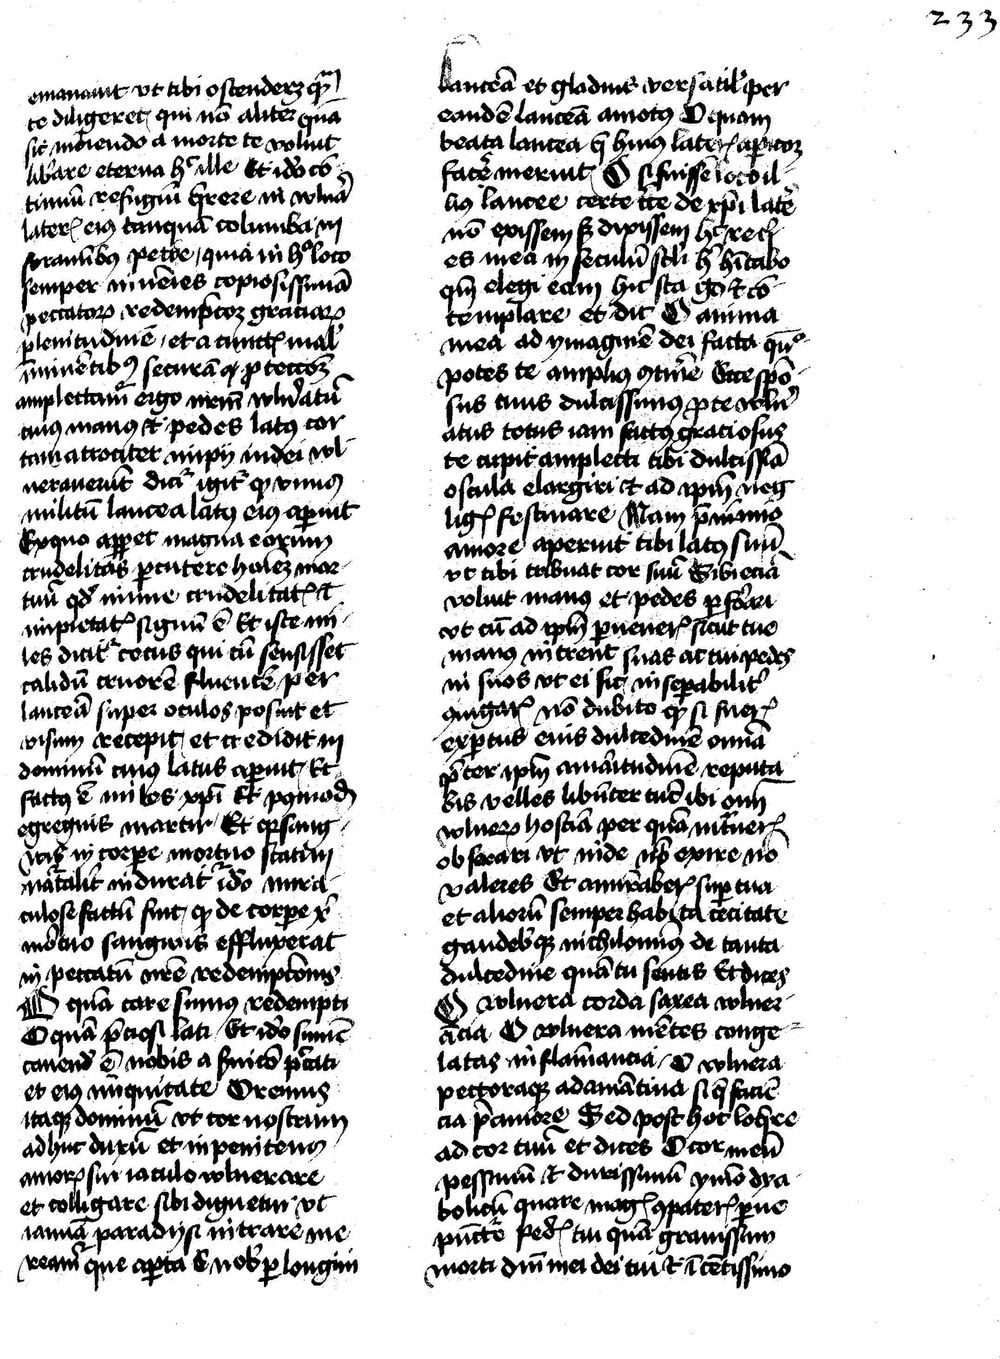 233
emanavit ut tibi ostenderet qm̄
te diligeret qui nō aliter quā
sic moriendo a morte te voluit
lib̄are eterna hec ille Et idō cō
timui refugiū q̄rere in vulnā
lateris eius tanquā columba in
foraminibus petre quia in hoc loco
semper invenies copiosissimā
peccatorum redemptorum graciarum
plenitudinē et a cunctis mal̄
iminētibus securā protectorem
amplectam̄ ergo vulneratū
cuius manus et pedes latus cor
tam atrociter impii iudei vul
neraverūt dicit igit̄ quod unus
militū lancea latus eius aperuit
Ex quo apparet magna eorum
crudelitas percutere hominem mor
tuū quod nimie crudelitatis et
impietatis signū ē Et iste mi
les dicitur cecus qui cū sensisset
calidū cruorē fluentē per
lanceā super oculos posuit et
visum recepit et credidit in
dominū cuius latus aperuit Et
factus ē miles xpi Et postmodum
egregius martir Et
in corpe mortuo statim
nāt̄alit̄ indurat̄ idō mira
culose factū fuit quod de corpe xi
mortuo sanguis effluxerat
in peccatū nr̄e redemptōnis
quā care sumus redempti
O quā pciosi lati Et idō summe
cavend̄ ē nobis a
et eius iniquitate Oremus
itaque dominū ut cor nostrum
adhuc durū et inpenitens
amoris sui iaculo vulnerare
et colligare sibi dignetur ut
ianuā paradysi intrare me
reamur que aperta ē nob̄ p longini
lanceā et gladius versatilis per
eandē lanceā amotus O quam
beata lancea q̄ huius lateris
facere meruit O si fuissē loco il
lius lancee certe de xpi latere
nō exissem s dixissem hec requi
es mea in seculū scli hic hītabo
qm̄ elegi eam hic sta et cō
templare et dic O anima
mea ad ymaginē dei facta quō
potes te amplius cotinere Ecce spō
sus tuus dulcissimus pro te vuln̄
atus totus iam factus graciosus
te cupit amplecti tibi dulcissīa
oscula elargiri et ad ipm̄ neg
ligis festinare Nam p̄ nimio
amore aperuit tibi latus suū
ut tibi tribuat cor suū Sibi eciā
voluit manus et pedes perforari
ut cū ad ipm̄ perveneris sicut tue
manus intrent suas ac tui pedes
in suos ut ei sic inseparabiliter
iungaris nō dubito quod si fueris
expertus eius dulcedinē omnia
preter ipm̄ amaritudinē reputa
bis velles libenter tunc ibi
vulnerum hostiā per quā intraveris
obserari ut inde exire nō
valeres Et amiraberis super tua
et aliorū semper habita cecitate
gaudebisque nichilominus de tanta
dulcedine quā tu sentis Et dices
O vulnera corda saxea vulner
ācia O vulnera mentes conge
latas inflamancia O vulnera
pectoraque adamātina
cia pre amore Sed post hoc loquere
ad cor tuū et dices O cor meū
pessimū et durissimū ymō dya
bolicū quare magis compateris
puncture pedis tui quā gravissim
morti dni mei dei tui et innocētissimo